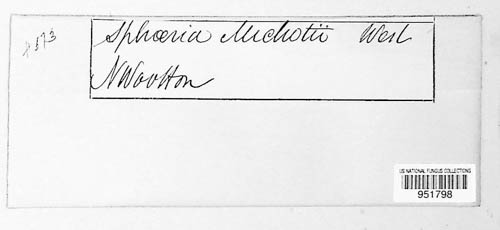 1873
Sphæria Michotii West
N Wootton
US NATIONAL FUNGUS COLLECTIONS
951798